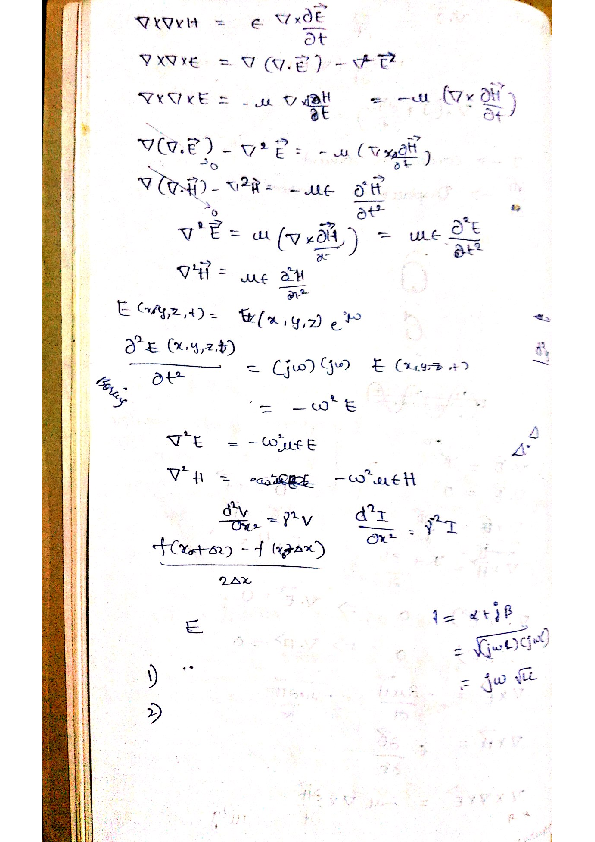 ∇×∇×H = ε ∇×∂E⃗/∂t
∇×∇×E = ∇(∇.E⃗) - ∇² E⃗²
∇×∇×E = -μ ∇×∂H/∂t = -μ (∇× ∂H⃗/∂t)
∇(∇.E⃗) - ∇² E⃗ = -μ (∇×∂H⃗/∂t)
→0
∇(∇.H⃗) - ∇²H⃗ = -με ∂²H⃗/∂t²
→0
∇²E⃗ = μ (∇×∂H⃗/∂t) = με ∂²E/∂t²
∇²H⃗ = με ∂²H/∂t²
E(x,y,z,t) = E(x,y,z) e^jω
∂²E(x,y,z,t)/∂t² = (jω)(jω) E(x,y,z,t)
= -ω² E
∇²E = -ω²μεE
∇²H = -ω²μεH
d²V/∂x² = γ²V d²I/∂x² = γ²I
f(x₀+Δx) - f(x₀-Δx)/2Δx
E
γ = α+jβ
= √(jωL)(jωC)
= jω √LC
1) ..
2)